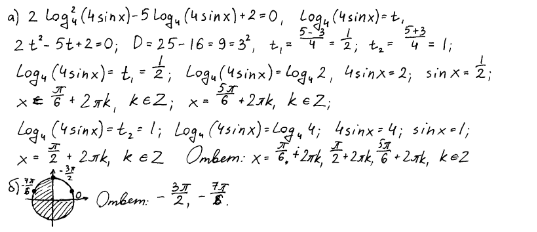 а) 2 log₄²(4sinx)-5log₄(4sinx)+2=0, log₄(4sinx)=t,
2t²-5t+2=0; D=25-16=9=3², t₁=(5-3)/4=1/2; t₂=(5+3)/4=1;
log₄(4sinx)=t₁=1/2; log₄(4sinx)=log₄2, 4sinx=2; sinx=1/2;
x=π/6+2πk, k∈Z; x=5π/6+2πk, k∈Z;
log₄(4sinx)=t₂=1; log₄(4sinx)=log₄4; 4sinx=4; sinx=1;
x=π/2+2πk, k∈Z Ответ: x=π/6+2πk, π/2+2πk, 5π/6+2πk, k∈Z
б) -7π/6 -3π/2 0 Ответ: -3π/2, -7π/6.